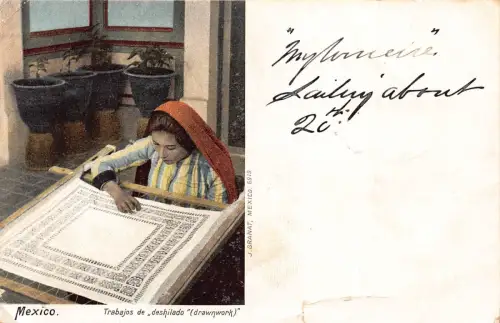 Mexico.
Trabajos de „deshilado“ (drawnwork)“
J. GRANAT, MEXICO. 6010
Sailing about
20th.